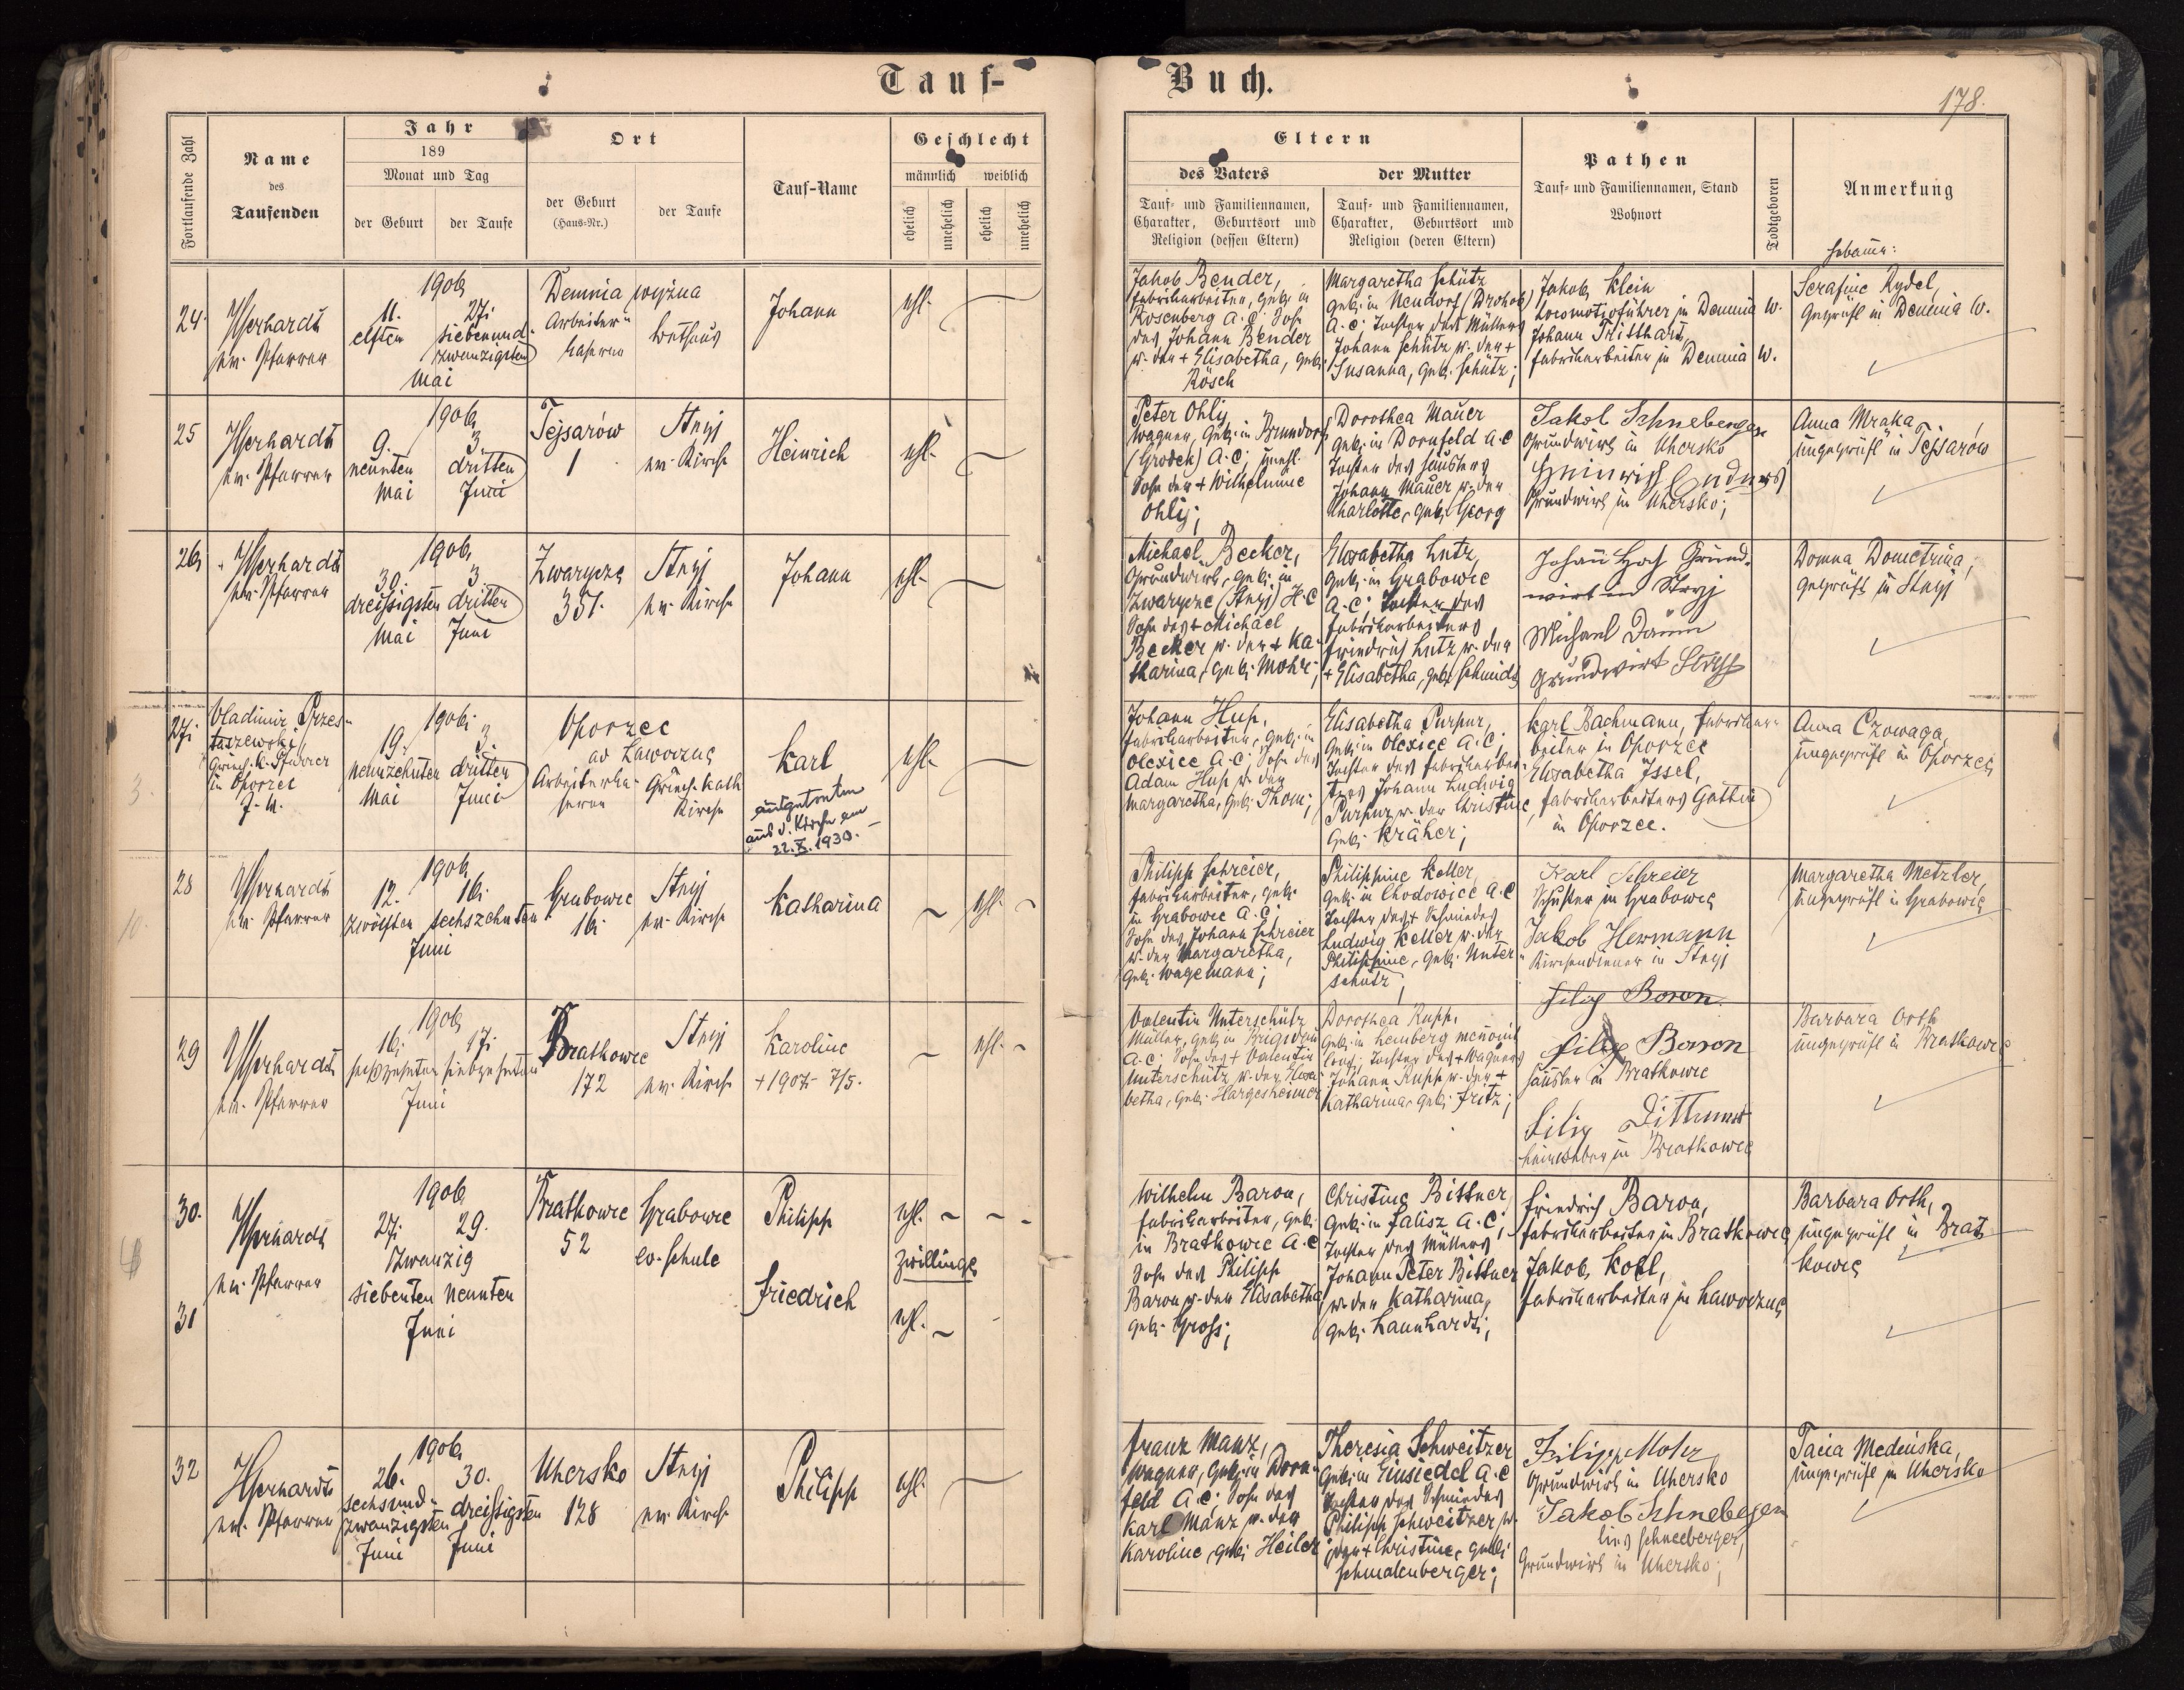 Tauf-
Buch.
178.
Fortlaufende Zahl
Name
des
Taufenden
Jahr
189
Monat und Tag
der Geburt
der Taufe
Ort
der Geburt
(Haus-Nr.)
der Taufe
Tauf-Name
Geschlecht
männlich
weiblich
ehelich
unehelich
ehelich
unehelich
Eltern
des Vaters
der Mutter
Tauf- und Familiennamen,
Charakter, Geburtsort und
Religion (dessen Eltern)
Tauf- und Familiennamen,
Charakter, Geburtsort und
Religion (deren Eltern)
Pathen
Tauf- und Familiennamen, Stand
Wohnort
Todtgeboren
Anmerkung
Hebamme:
24.
ev. Pfarrer
1906
11.
27.
elften
siebenund-
zwanzigsten
Mai
Demnia wyżna
Arbeiter-
kaserne
Bethaus
Johann
ehl.
Jakob Bender,
Fabriksarbeiter, geb. in
Rosenberg A. C. Sohn
des Johann Bender
u. der + Elisabetha, geb.
Rösch
Margaretha Schütz
geb. in Neudorf (Drohob)
A. C; Tochter des Müllers
Johann Schütz u. der +
Susanna, geb. Schütz;
Jakob Klein
Locomotivführer in Demnia W.
Johann Tritthart,
Fabriksarbeiter in Demnia W.
Serafine Rydel,
geprüft in Demnia W.
25
ev. Pfarrer
1906
9.
3.
neunten
dritten
Mai
Juni
Tejsarów
1
Stryj
ev. Kirche
Heinrich
ehl.
Peter Ohly
Wagner, geb. in Brundorf
(Grodek) A. C; unehl.
Sohn der + Wilhelmine
Ohly;
Dorothea Mauer
geb. in Dornfeld A. C
Tochter des Häuslers
Johann Mauer u. der
Charlotte, geb. Georg
Jakob Schneberger
Grundwirt in Uhersko
Heinrich
Grundwirt in Uhersko;
Anna Mraka
ungeprüft in Tejsarów
26
ev. Pfarrer
1906
30.
3.
dreissigsten
dritten
Mai
Juni
Zwarycze
351.
Stryj
ev. Kirche
Johann
ehl.
Michael Becker,
Grundwirt, geb. in
Zwarycze (Stryj) H. C
Sohn des + Michael
Becker u. der + Ka-
tharina, geb. Mohr;
Elisabetha Lutz,
geb. in Grabowce
A. C; Tochter des
Fabriksarbeiters
Friedrich Lutz u. der
+ Elisabetha, geb. Schmidt
Johann Hoch Grund-
wirt in Stryj
Michael Daum
Grundwirt Stryj
Domna Dometrina,
geprüft in Stryj
27.
Vladimir Przes-
taszewski,
Griech. k. Pfarrer
in Oporzec
1906.
19.
3.
neunzehnten
dritten
Mai
Juni
Oporzec
ad Laworzne
Arbeiterka-
serne
Griech. kath
Kirche
Karl
ausgetreten
aus d. Kirche am
22. X. 1930. –
ehl.
Johann Hup,
Fabriksarbeiter, geb. in
Olexice A. C; Sohn des
Adam Hup u. der
Margaretha, geb. Thom;
Elisabetha Purpur,
geb. in Olexice A. C;
Tochter des Fabriksarbei-
ters Johann Ludwig
Purpur u. der Christine,
geb. Kräher;
Karl Bachmann, Fabriksar-
beiter in Oporzec
Elisabetha Issel,
Fabriksarbeiters Gattin
in Oporzec.
Anna Czowaga,
ungeprüft in Oporzec
3.
28
ev. Pfarrer
1906
12.
16.
zwölften
sechszehnten
Juni
Grabowce
16.
Stryj
ev. Kirche
Katharina
ehl.
Philipp Schreier,
Fabriksarbeiter, geb.
in Grabowce A. C;
Sohn des Johann Schreier
u. der Margaretha,
geb. Wagemann;
Philippine Keller,
geb. in Chodowice A. C
Tochter des + Schmiedes
Ludwig Keller u. der
Philippine, geb. Unter-
schütz;
Karl Schreier
Schuster in Grabowce
Jakob Hermann
Kirchendiener in Stryj
Margaretha Metzler,
ungeprüft in Grabowce
10.
29
ev. Pfarrer
1906
16.
17.
sechzehnten
siebzehnten
Juni
Bratkowce
172
Stryj
ev. Kirche
Karoline
+ 1907 7/5.
ehl.
Valentin Unterschütz
Müller, geb. in Brigidau
A. C; Sohn des + Valentin
Unterschütz u. der Elisa-
betha, geb. Hargesheimer
Dorothea Rupp,
geb. in Lemberg
Tochter des + Wagners
Johann Rupp u. der +
Katharina, geb. Fritz;
Filip Boron
Filip Boron
Häusler in Bratkowce
Filip
in Bratkowce
Barbara Orth
ungeprüft in Bratkowce
30.
31
ev. Pfarrer
1906
27.
29.
zwanzig
siebenten
neunten
Juni
Bratkowce
52
Grabowce
ev. Schule
Philipp
Friedrich
ehl.
Zwillinge
ehl.
Wilhelm Baron,
Fabriksarbeiter, geb.
in Bratkowce A. C
Sohn des Philipp
Baron u. der Elisabetha
geb. Gross;
Christine Bittner,
geb. in Falisz A. C;
Tochter des Müllers
Johann Peter Bittner
u. der Katharina,
geb. Launhardt;
Friedrich Baron,
Fabriksarbeiter in Bratkowce
Jakob Kobl,
Fabriksarbeiter in Laworzne
Barbara Orth,
ungeprüft in Brat
kowce
32
ev. Pfarrer
1906
26.
30.
sechsund-
zwanzigsten
dreissigsten
Juni
Juni
Uhersko
128
Stryj
ev. Kirche
Philipp
ehl.
Franz Manz,
Wagner, geb. in Dorn-
feld A. C; Sohn des
Karl Manz u. der
Karoline, geb. Heiler
Theresia Schweitzer
geb. in Einsiedel A. C
Tochter des Schmiedes
Philipp Schweitzer u.
der + Christine, geb.
Schmalenberger;
Filipp Mohr
Grundwirt in Uhersko
Jakob Schneberger
lies Schneeberger,
Grundwirt in Uhersko;
Medeńska,
ungeprüft in Uhersko